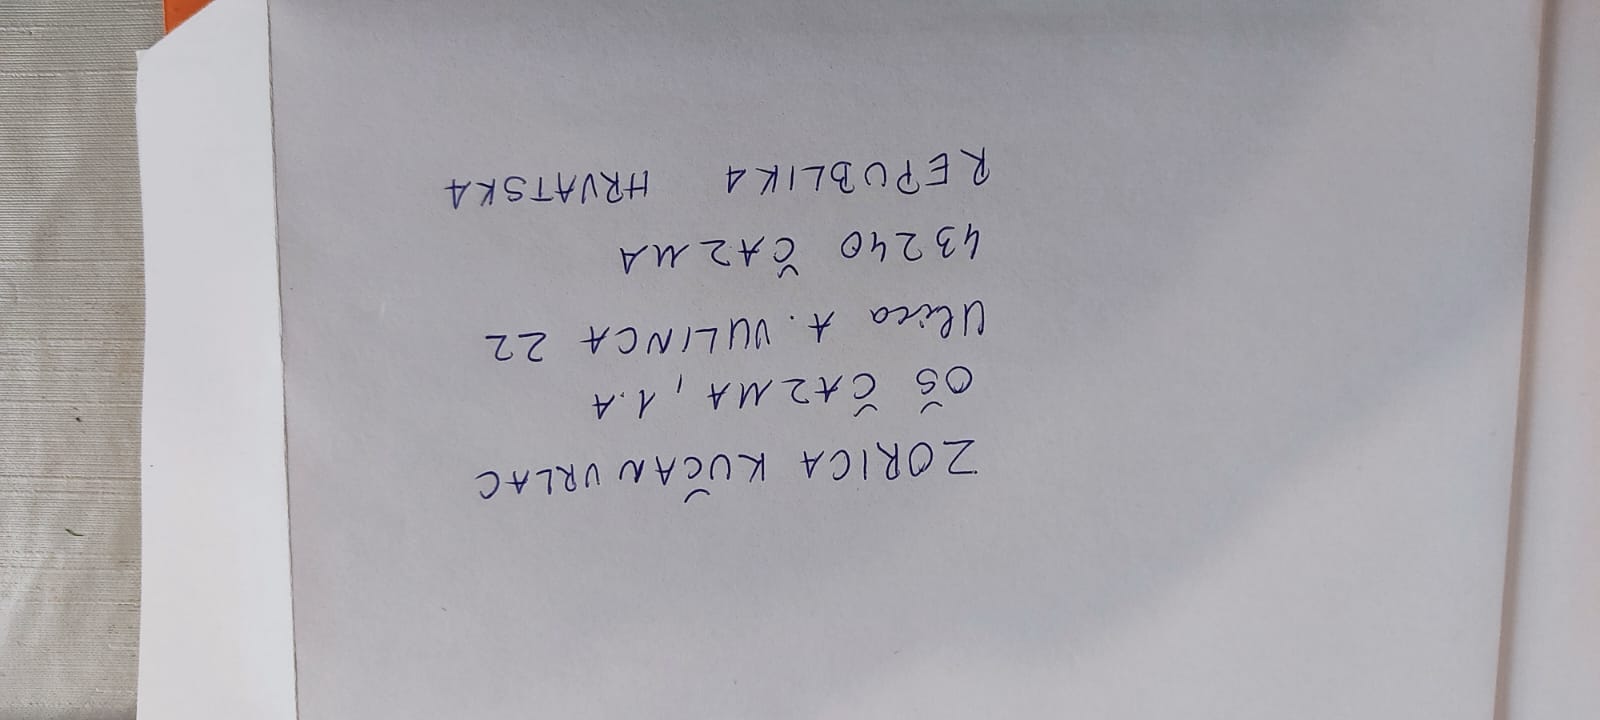 ZORICA KUČAN VRLAC
OŠ ČAZMA, 1.A
Ulica A. VULINCA 22
43240 ČAZMA
REPUBLIKA HRVATSKA